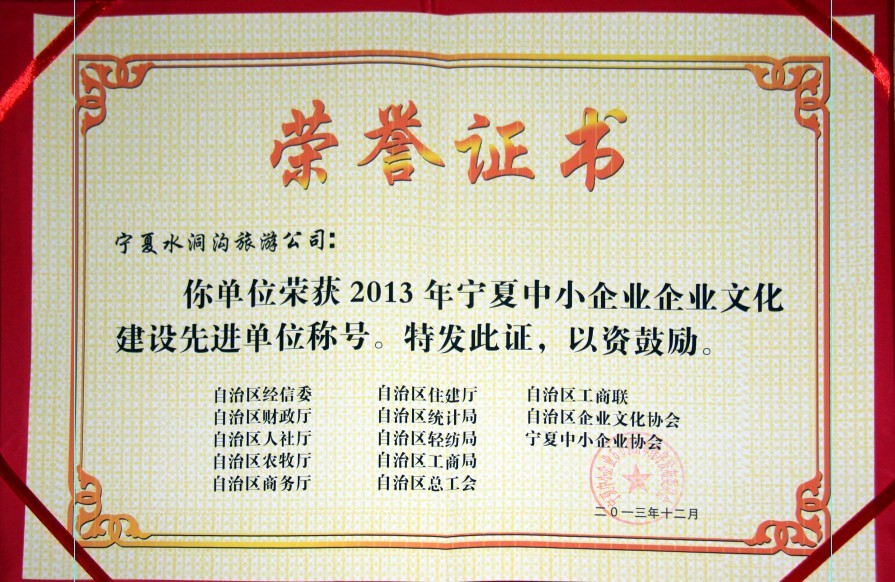 荣誉证书
宁夏水洞沟旅游公司：
你单位荣获2013年宁夏中小企业企业文化
建设先进单位称号。特发此证，以资鼓励。
自治区经信委 自治区住建厅 自治区工商联
自治区财政厅 自治区统计局 自治区企业文化协会
自治区人社厅 自治区轻纺局 宁夏中小企业协会
自治区农牧厅 自治区工商局
自治区商务厅 自治区总工会
二〇一三年十二月